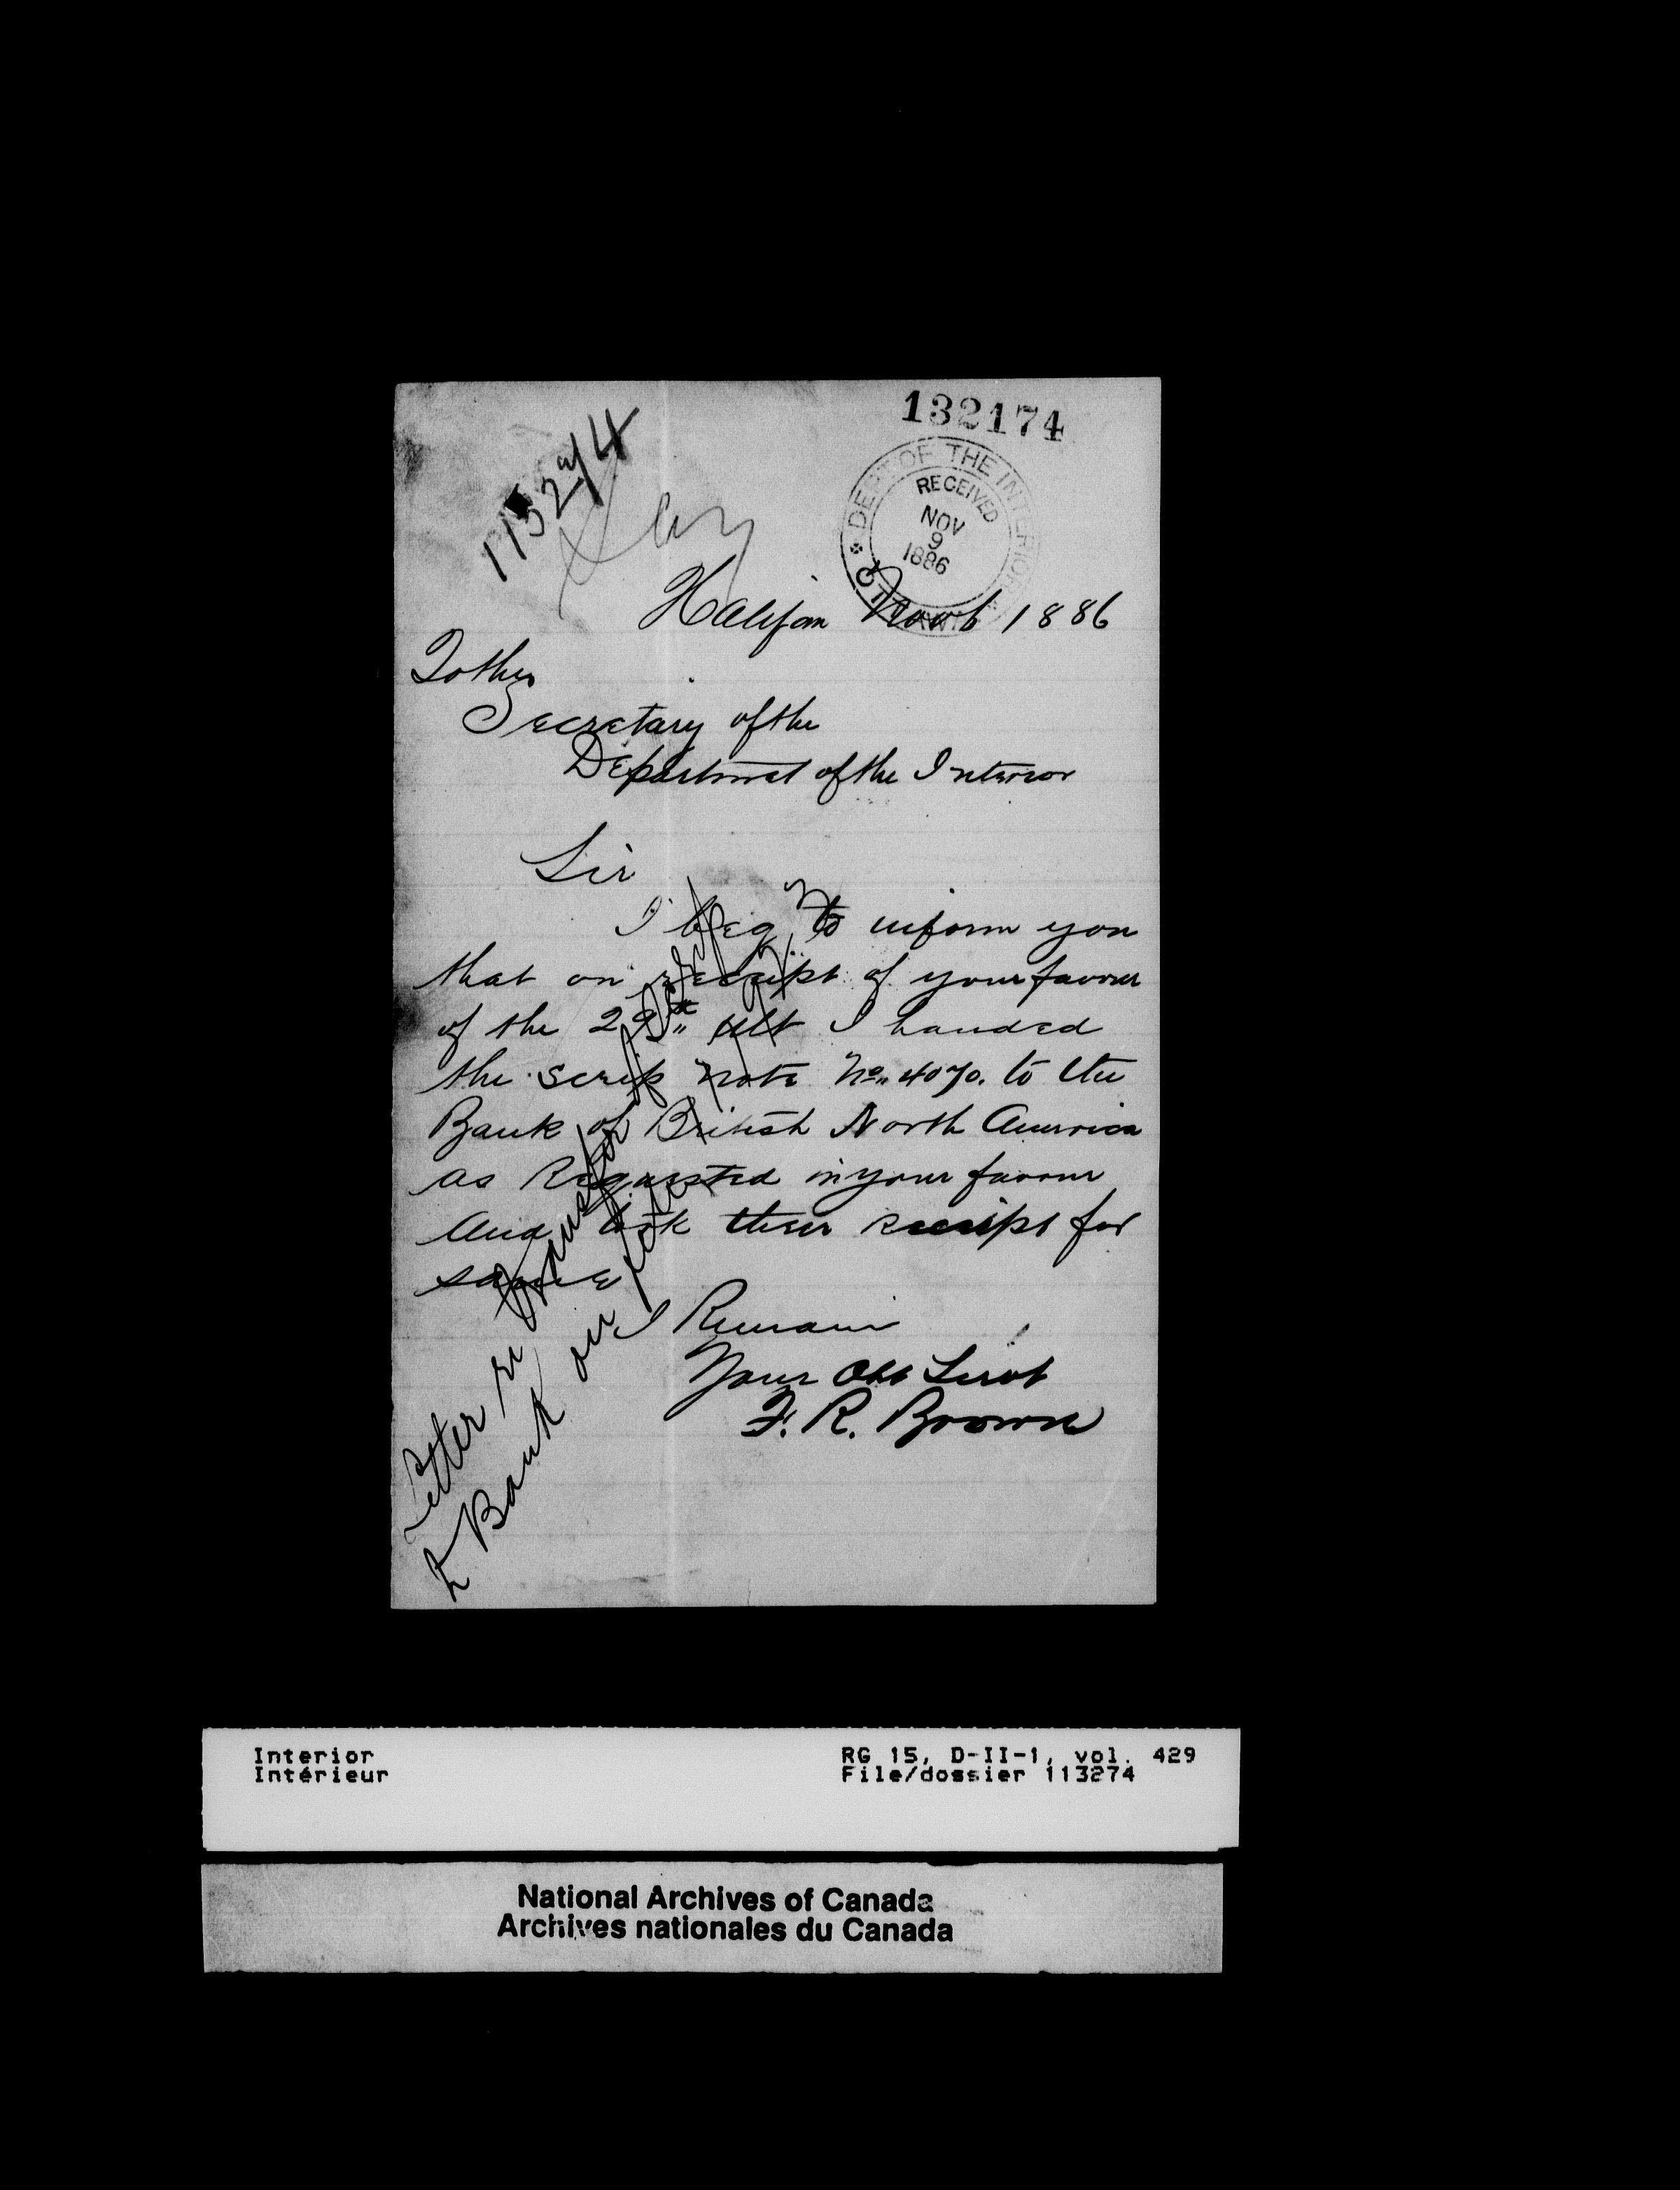 132174
DEPT OF THE INTERIOR
RECEIVED
NOV
9
1886
OTTAWA
Halifax Nov 6 1886
To the
Secretary of the
Department of the Interior
Sir
I beg to inform you
that on receipt of your favour
of the 29th ult I handed
the scrip note No. 4070. to the
Bank of British North America
as Requested in your favour
and took their receipt for
same
I Remain
Your Obt Servt
F. R. Brown
Letter re transfer of Scrip
to Bank on
Interior
Intérieur
RG 15, D-II-1, vol. 429
File/dossier 113274
National Archives of Canada
Archives nationales du Canada